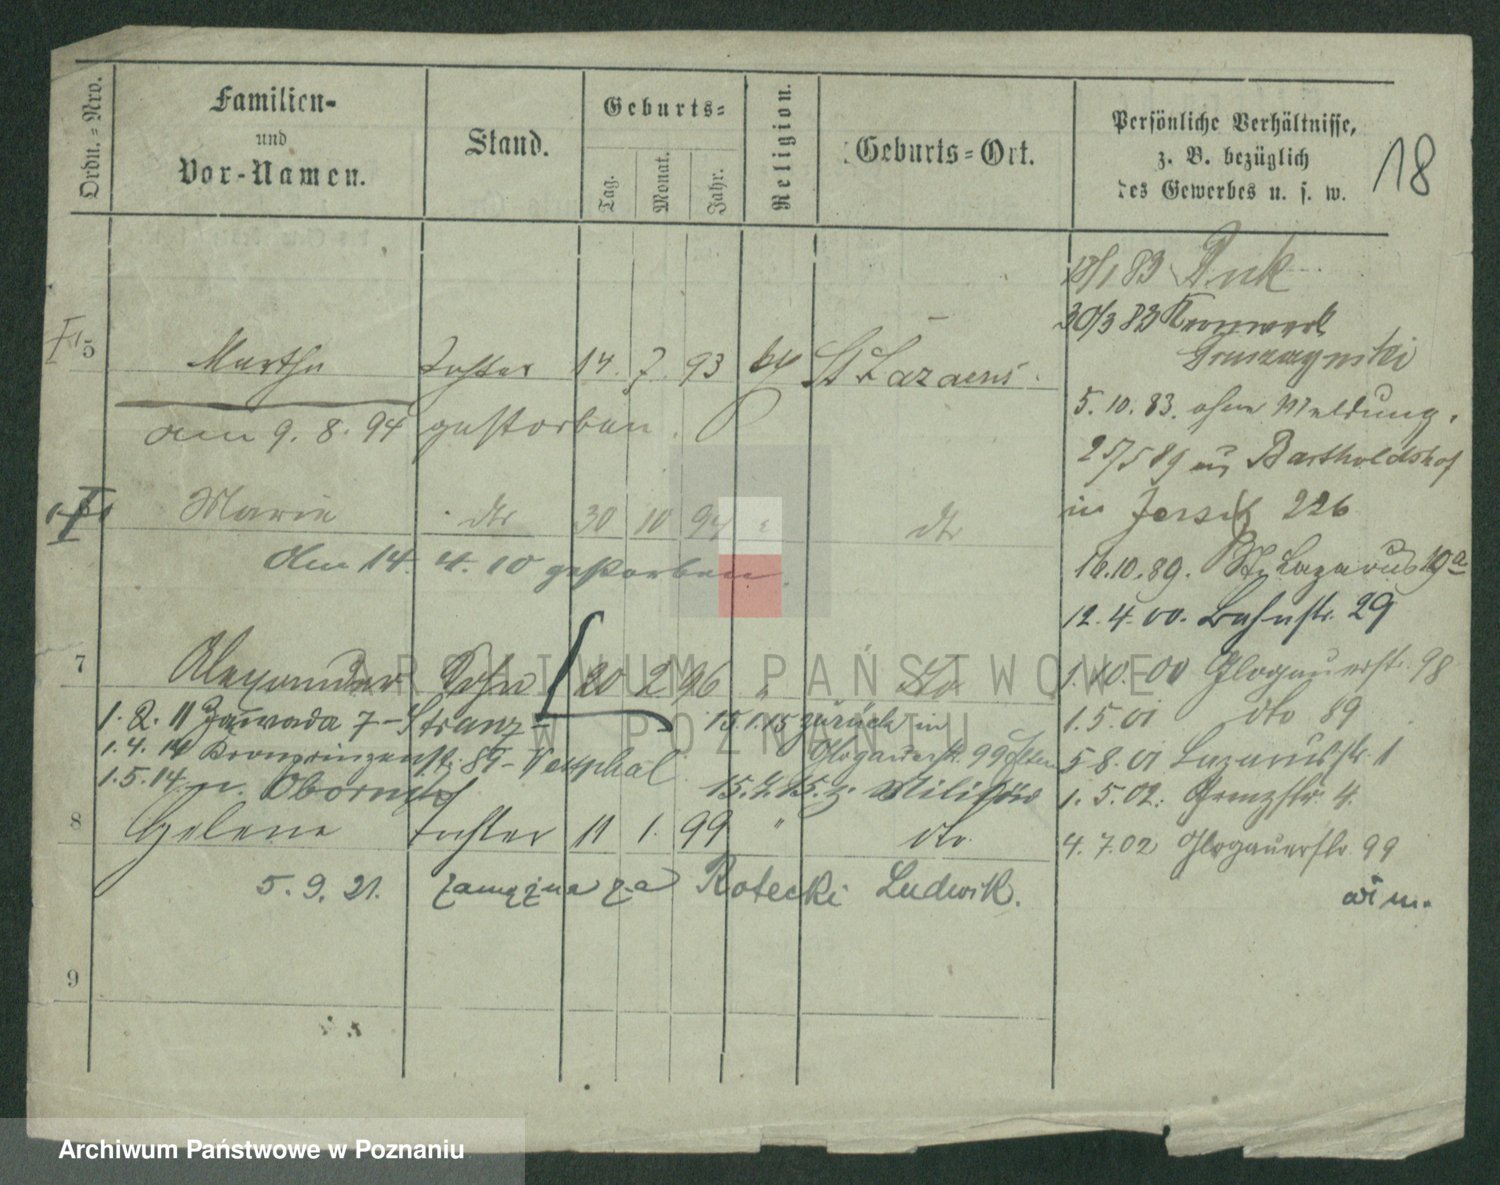 Ordn.=Nro.
Familien-
und
Vor-Namen.
Stand.
Geburts=
Tag.
Monat.
Jahr.
Religion.
Geburts=Ort.
Persönliche Verhältnisse,
z. B. bezüglich
des Gewerbes u. s. w.
18
5 Martha Tochter 14. 7. 93 kth St Lazarus.
am 9. 8. 94 gestorben.
Marie dto 30 10 94 " dto
Am 14. 4. 10 gestorben.
7 Alexander Sohn 20 2 96 " dto
1. 2. 11 Zawada 7 - Stranz 15.1.15 zurück in
1. 4. 14 Kronprinzenstr. 89 - Vesphal Glogauerstr. 99 Eltern
1. 5. 14 n. Obornik 15.7.15. z. Militär
8 Helene Tochter 11 1. 99 " dto
5. 9. 21. zamężna za Rotecki Ludwik.
9
18/1 83
30/3 83 Kernwerk
5. 10. 83. ohne Meldung.
25/5 89 aus Bartholdshof
in Jersitz 226
16.10.89. St. Lazarus 19a
12. 4. 00. Bahnstr. 29
1. 10. 00 Glogauerstr. 98
1. 5. 01 dto 89
5 8. 01 Lazarusstr. 1
1. 5. 02. Grenzstr. 4.
4. 7. 02 Glogauerstr. 99
ARCHIWUM PAŃSTWOWE
W POZNANIU
Archiwum Państwowe w Poznaniu